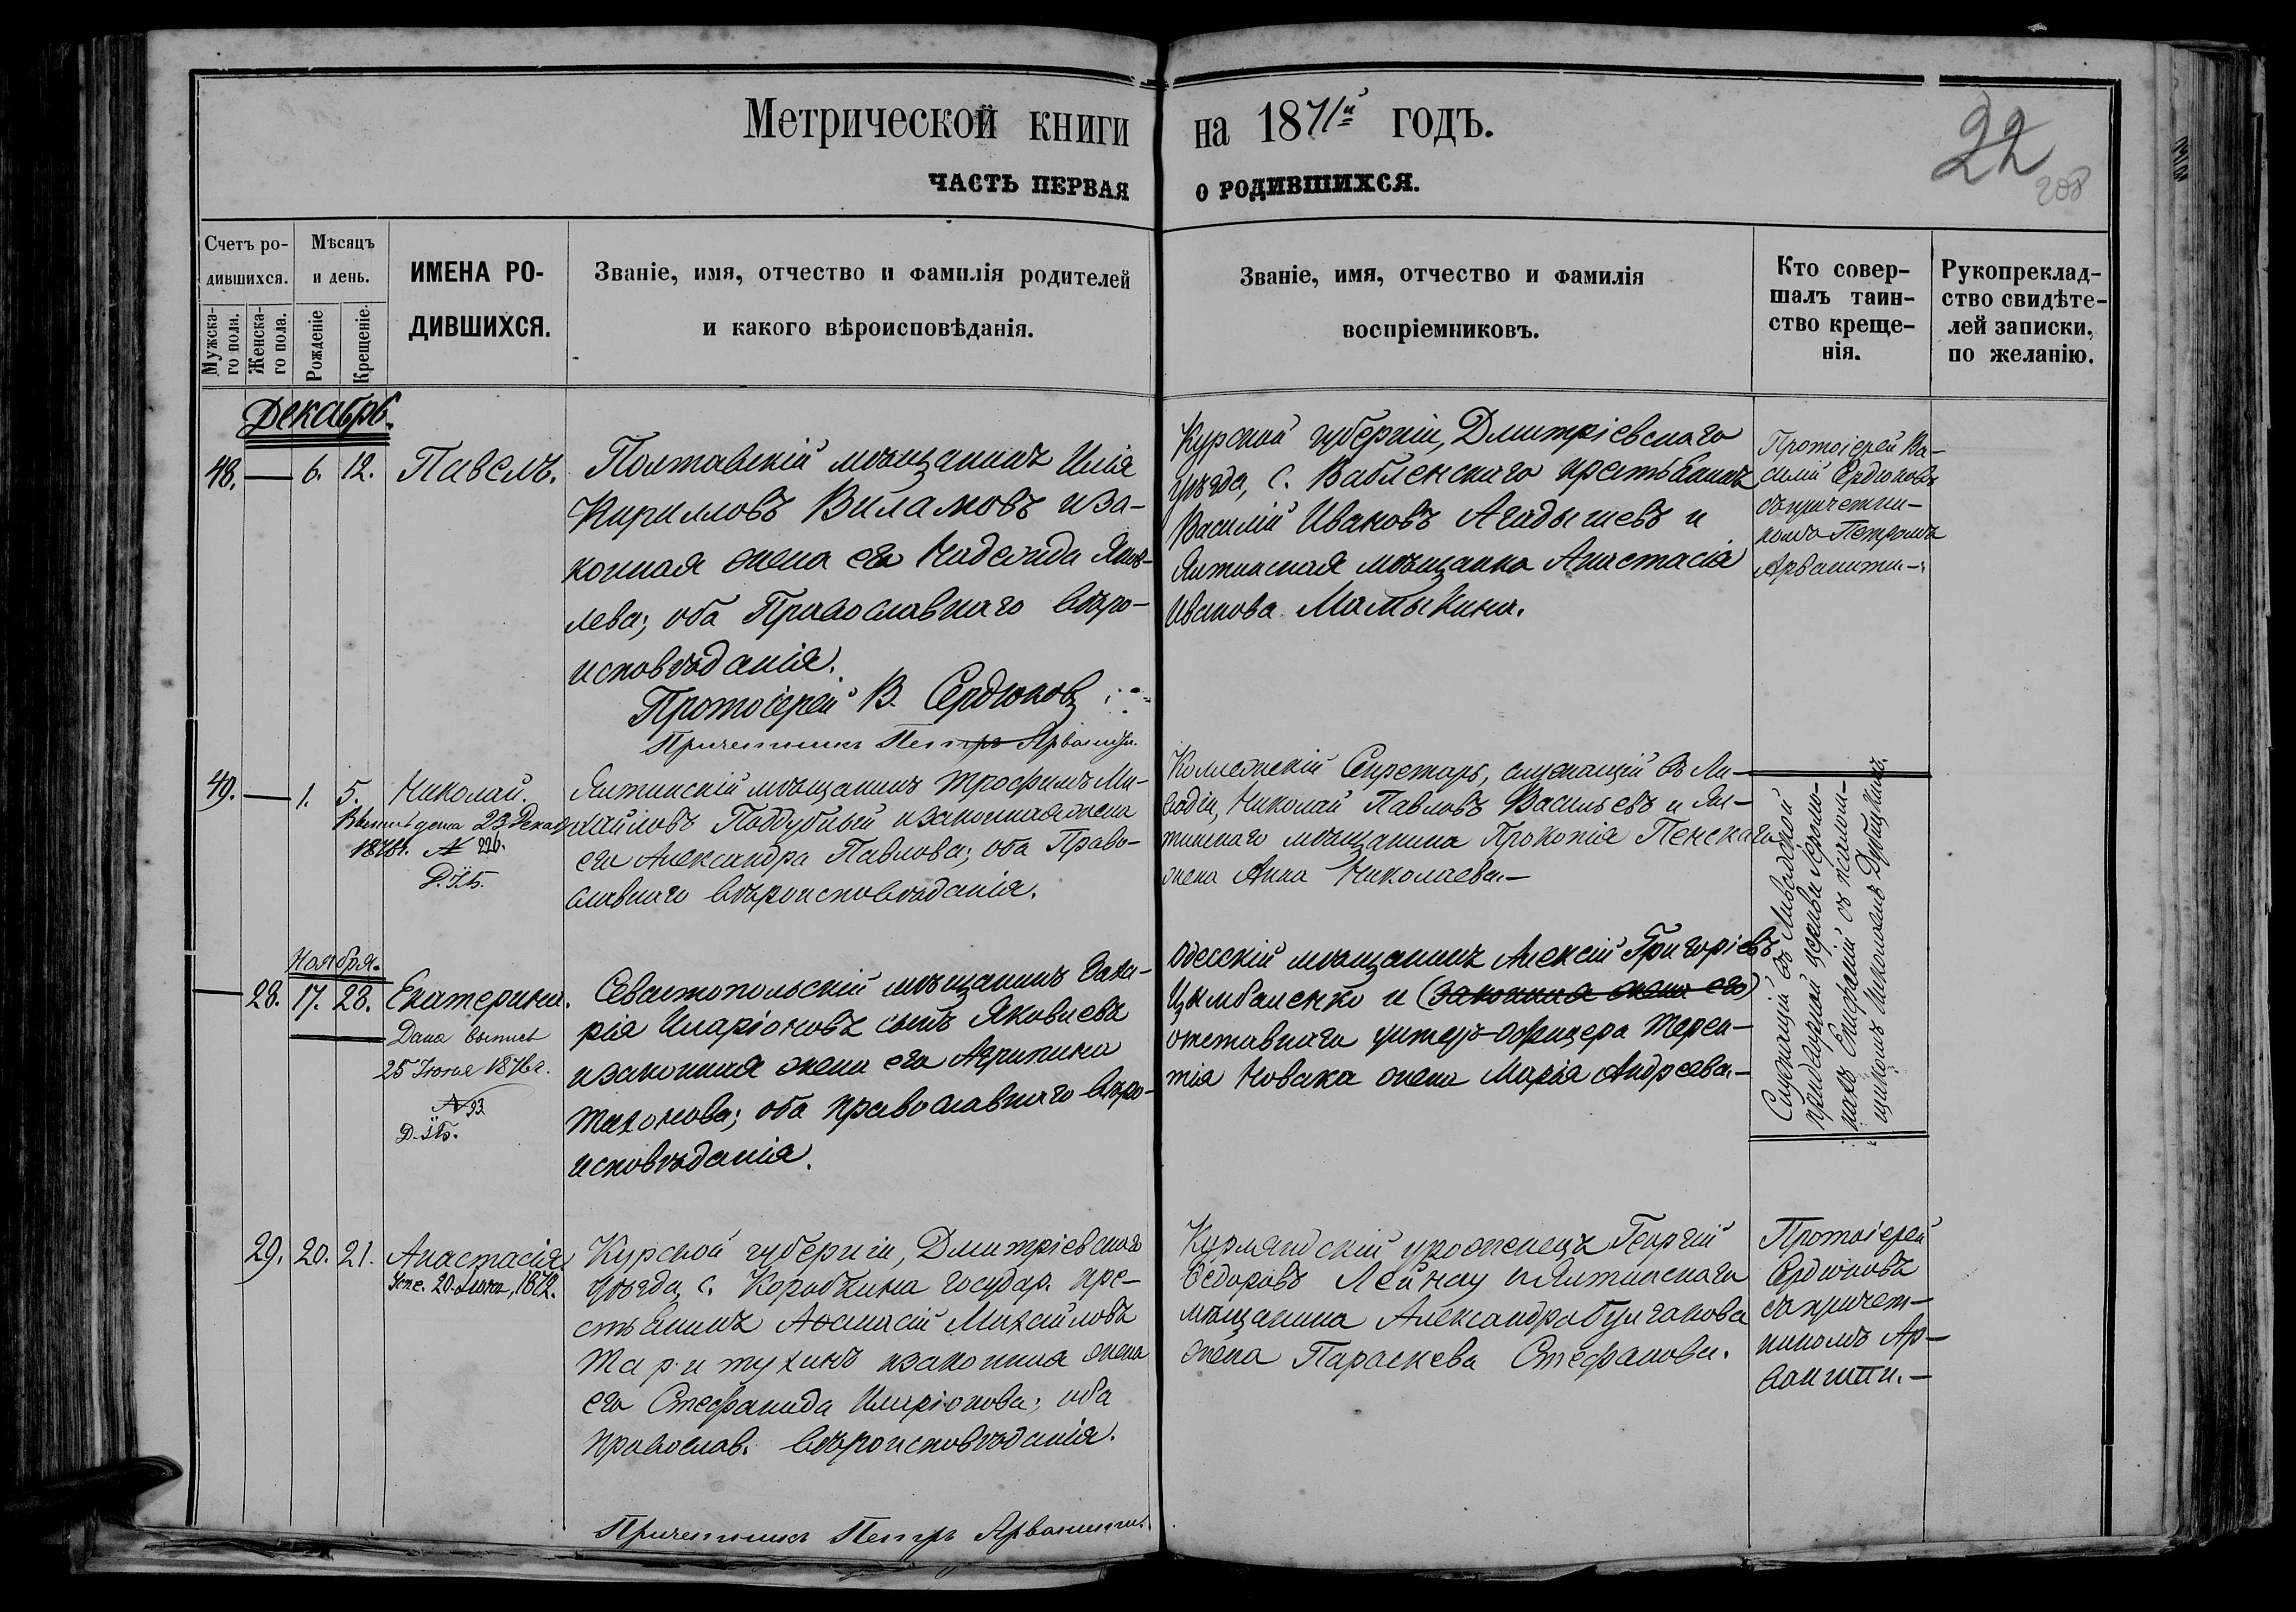 Метрической книги на 1871й годъ.
ЧАСТЬ ПЕРВАЯ О РОДИВШИХСЯ.
22
208
Счетъ ро-
дившихся.
Мужска-
го пола.
Женска-
го пола.
Мѣсяцъ
и день.
Рожденіе
Крещеніе.
ИМЕНА РО-
ДИВШИХСЯ.
Званіе, имя, отчество и фамилія родителей
и какого вѣроисповѣданія.
Званіе, имя, отчество и фамилія
воспріемниковъ.
Кто совер-
шалъ таин-
ство креще-
нія.
Рукопреклад-
ство свидѣте-
лей записки,
по желанію.
Декабрь.
48. — 6. 12. Павелъ.
Полтавскій мѣщанинъ Илія
Кирилловъ Виламовъ и за-
конная жена его Надежда Яков-
лева; оба Православнаго вѣро-
исповѣданія.
Протоіерей В. Сердюковъ
Причетникъ Петръ Арванити.
Курской губерніи, Дмитріевскаго
уѣзда, с. Вабленскаго крестьянинъ
Василій Ивановъ Агадышевъ и
Ялтинская мѣщанка Анастасія
Иванова Мамыкина.
Протоіерей Ва-
силій Сердюковъ
съ причетни-
комъ Петромъ
Арванити.
49. — 1. 5. Николай.
23 Декаб.
187 г. № 226.
Ялтинскій мѣщанинъ Трофимъ Ми-
хайловъ Поддубный и законная жена
его Александра Павлова; оба Право-
славнаго вѣроисповѣданія.
Коллежскій Секретарь, служащій въ Ли-
вадіи, Николай Павловъ Васильевъ и Ял-
тинскаго мѣщанина Прокопія Пенскаго
жена Анна Николаева.
Служащій въ Ливадской
придворной церкви Іеромо-
нахъ Епифаній съ псалом-
щикомъ Николаемъ
Ноября.
— 28. 17. 28. Екатерина.
Дана выпись
25 Іюня 1876 г.
№ 93
Севастопольскій мѣщанинъ Заха-
рія Иларіоновъ сынъ Яковлевъ
и законная жена его Агрипина
Тихонова; оба православнаго вѣро-
исповѣданія.
Одесскій мѣщанинъ Алексій Григорьевъ
Цымбаленко и (законная жена его)
отставнаго унтеръ-офицера Терен-
тія Новака жена Марія Андреева.
29. 20. 21. Анастасія
1872.
Курской губерніи, Дмитріевскаго
уѣзда, с. Коробкина государ. кре-
стьянинъ Аѳанасій Михайловъ
Таритухинъ и законная жена
его Стефанида Иларіонова; оба
православ. вѣроисповѣданія.
Курляндскій уроженецъ Георгій
Ѳедоровъ Лейнау и Ялтинскаго
мѣщанина Александра Булгакова
жена Параскева Стефанова.
Протоіерей
Сердюковъ
съ причет-
никомъ Ар-
ванити.
Причетникъ Петръ Арванити.